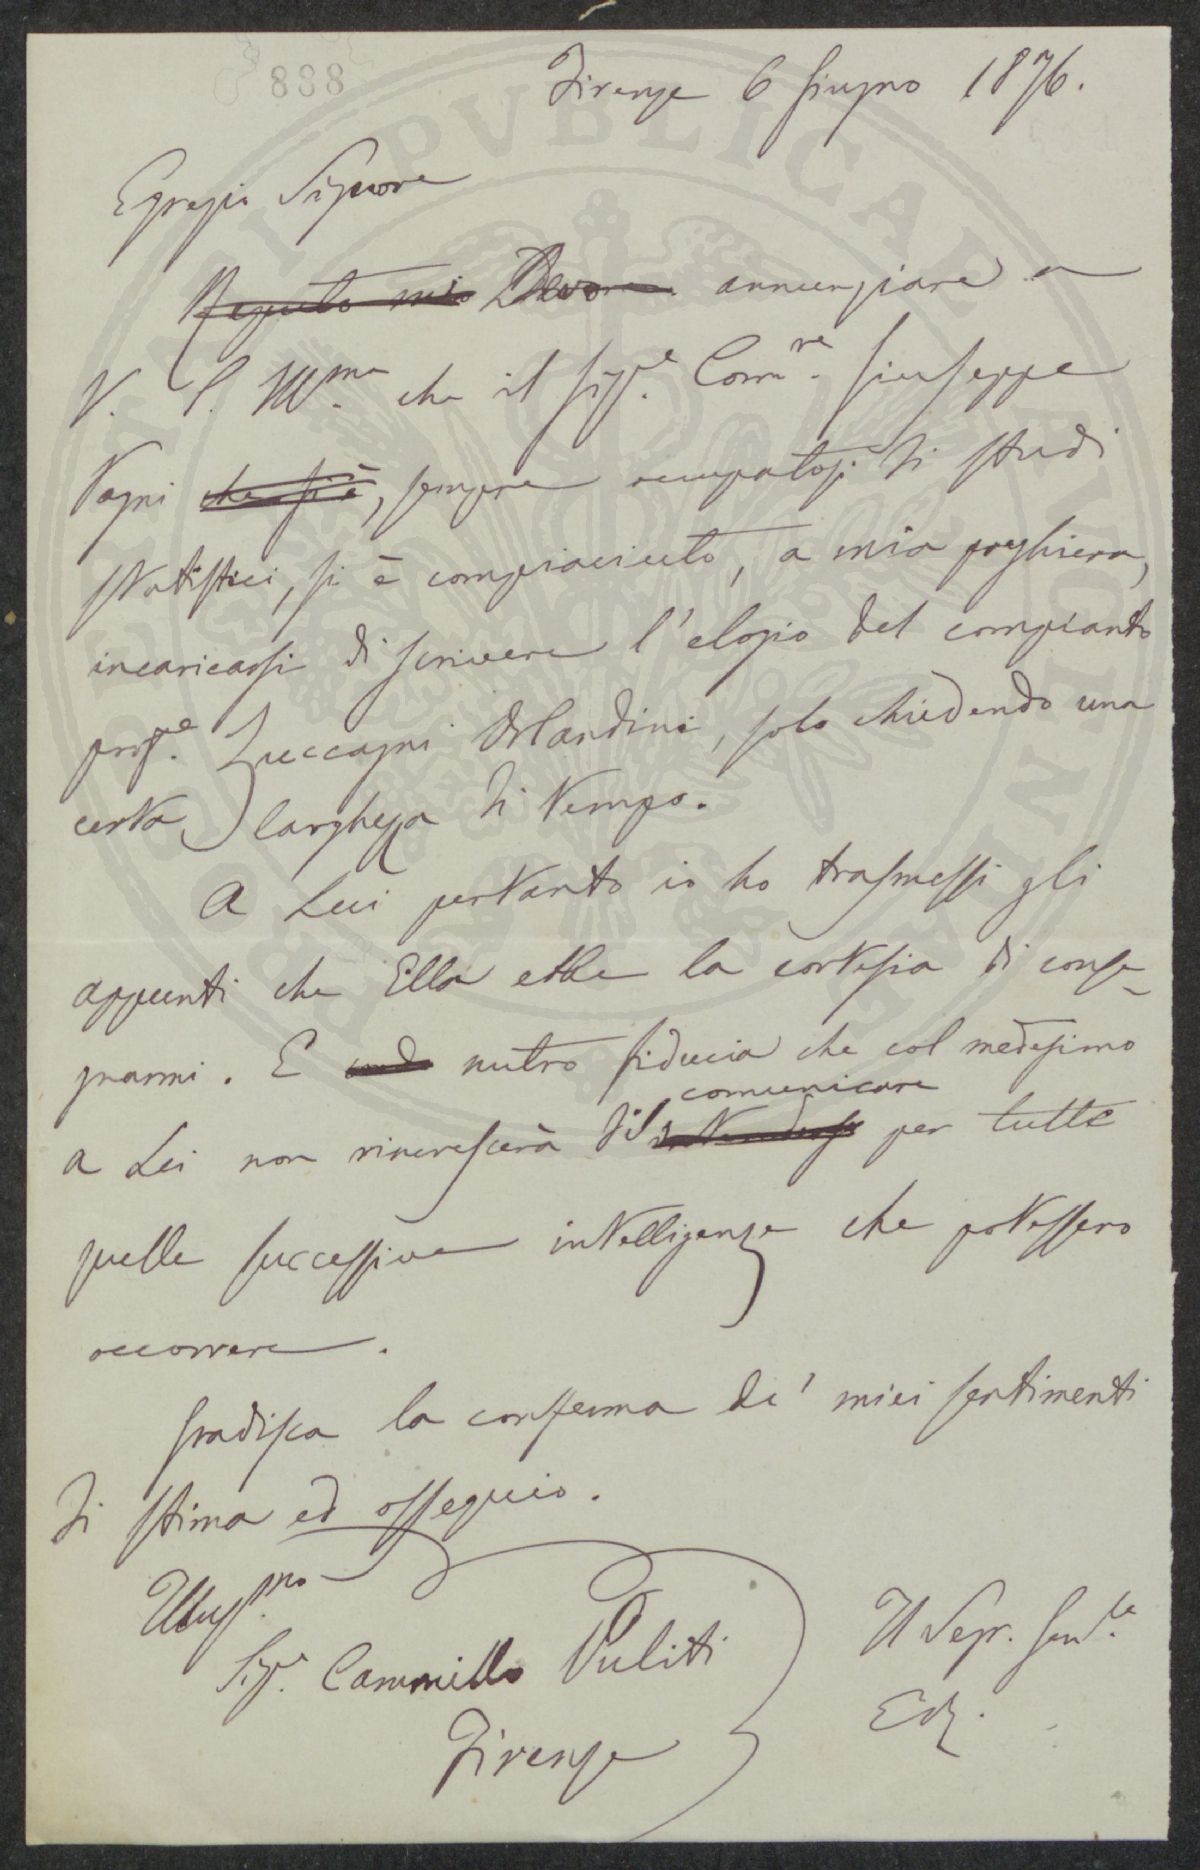 838
Firenze 6 Giugno 1876.
Egregio Signore
Reputo mio Dovere annunziare a
V. S. Ill.ma che il Sig.e Comm.re Giuseppe
Vagni che si è, sempre occupatosi di studi
statistici, si è compiaciuto, a mia preghiera,
incaricarsi di scrivere l'elogio del compianto
prof.e Zuccagni Orlandini, solo chiedendo una
certa larghezza di tempo.
A Lui pertanto io ho trasmessi gli
appunti che Ella ebbe la cortesia di conse-
gnarmi. E nutro fiducia che col medesimo
comunicare
a Lei non rincrescerà di intendersi per tutte
quelle successive intelligenze che potessero
occorrere.
Gradisca la conferma de' miei sentimenti
di stima ed ossequio.
Illus.mo
Sig.e Cammillo Puliti
Firenze
Il Segr. Gen.le
PROPRIETATI PVBLICAE